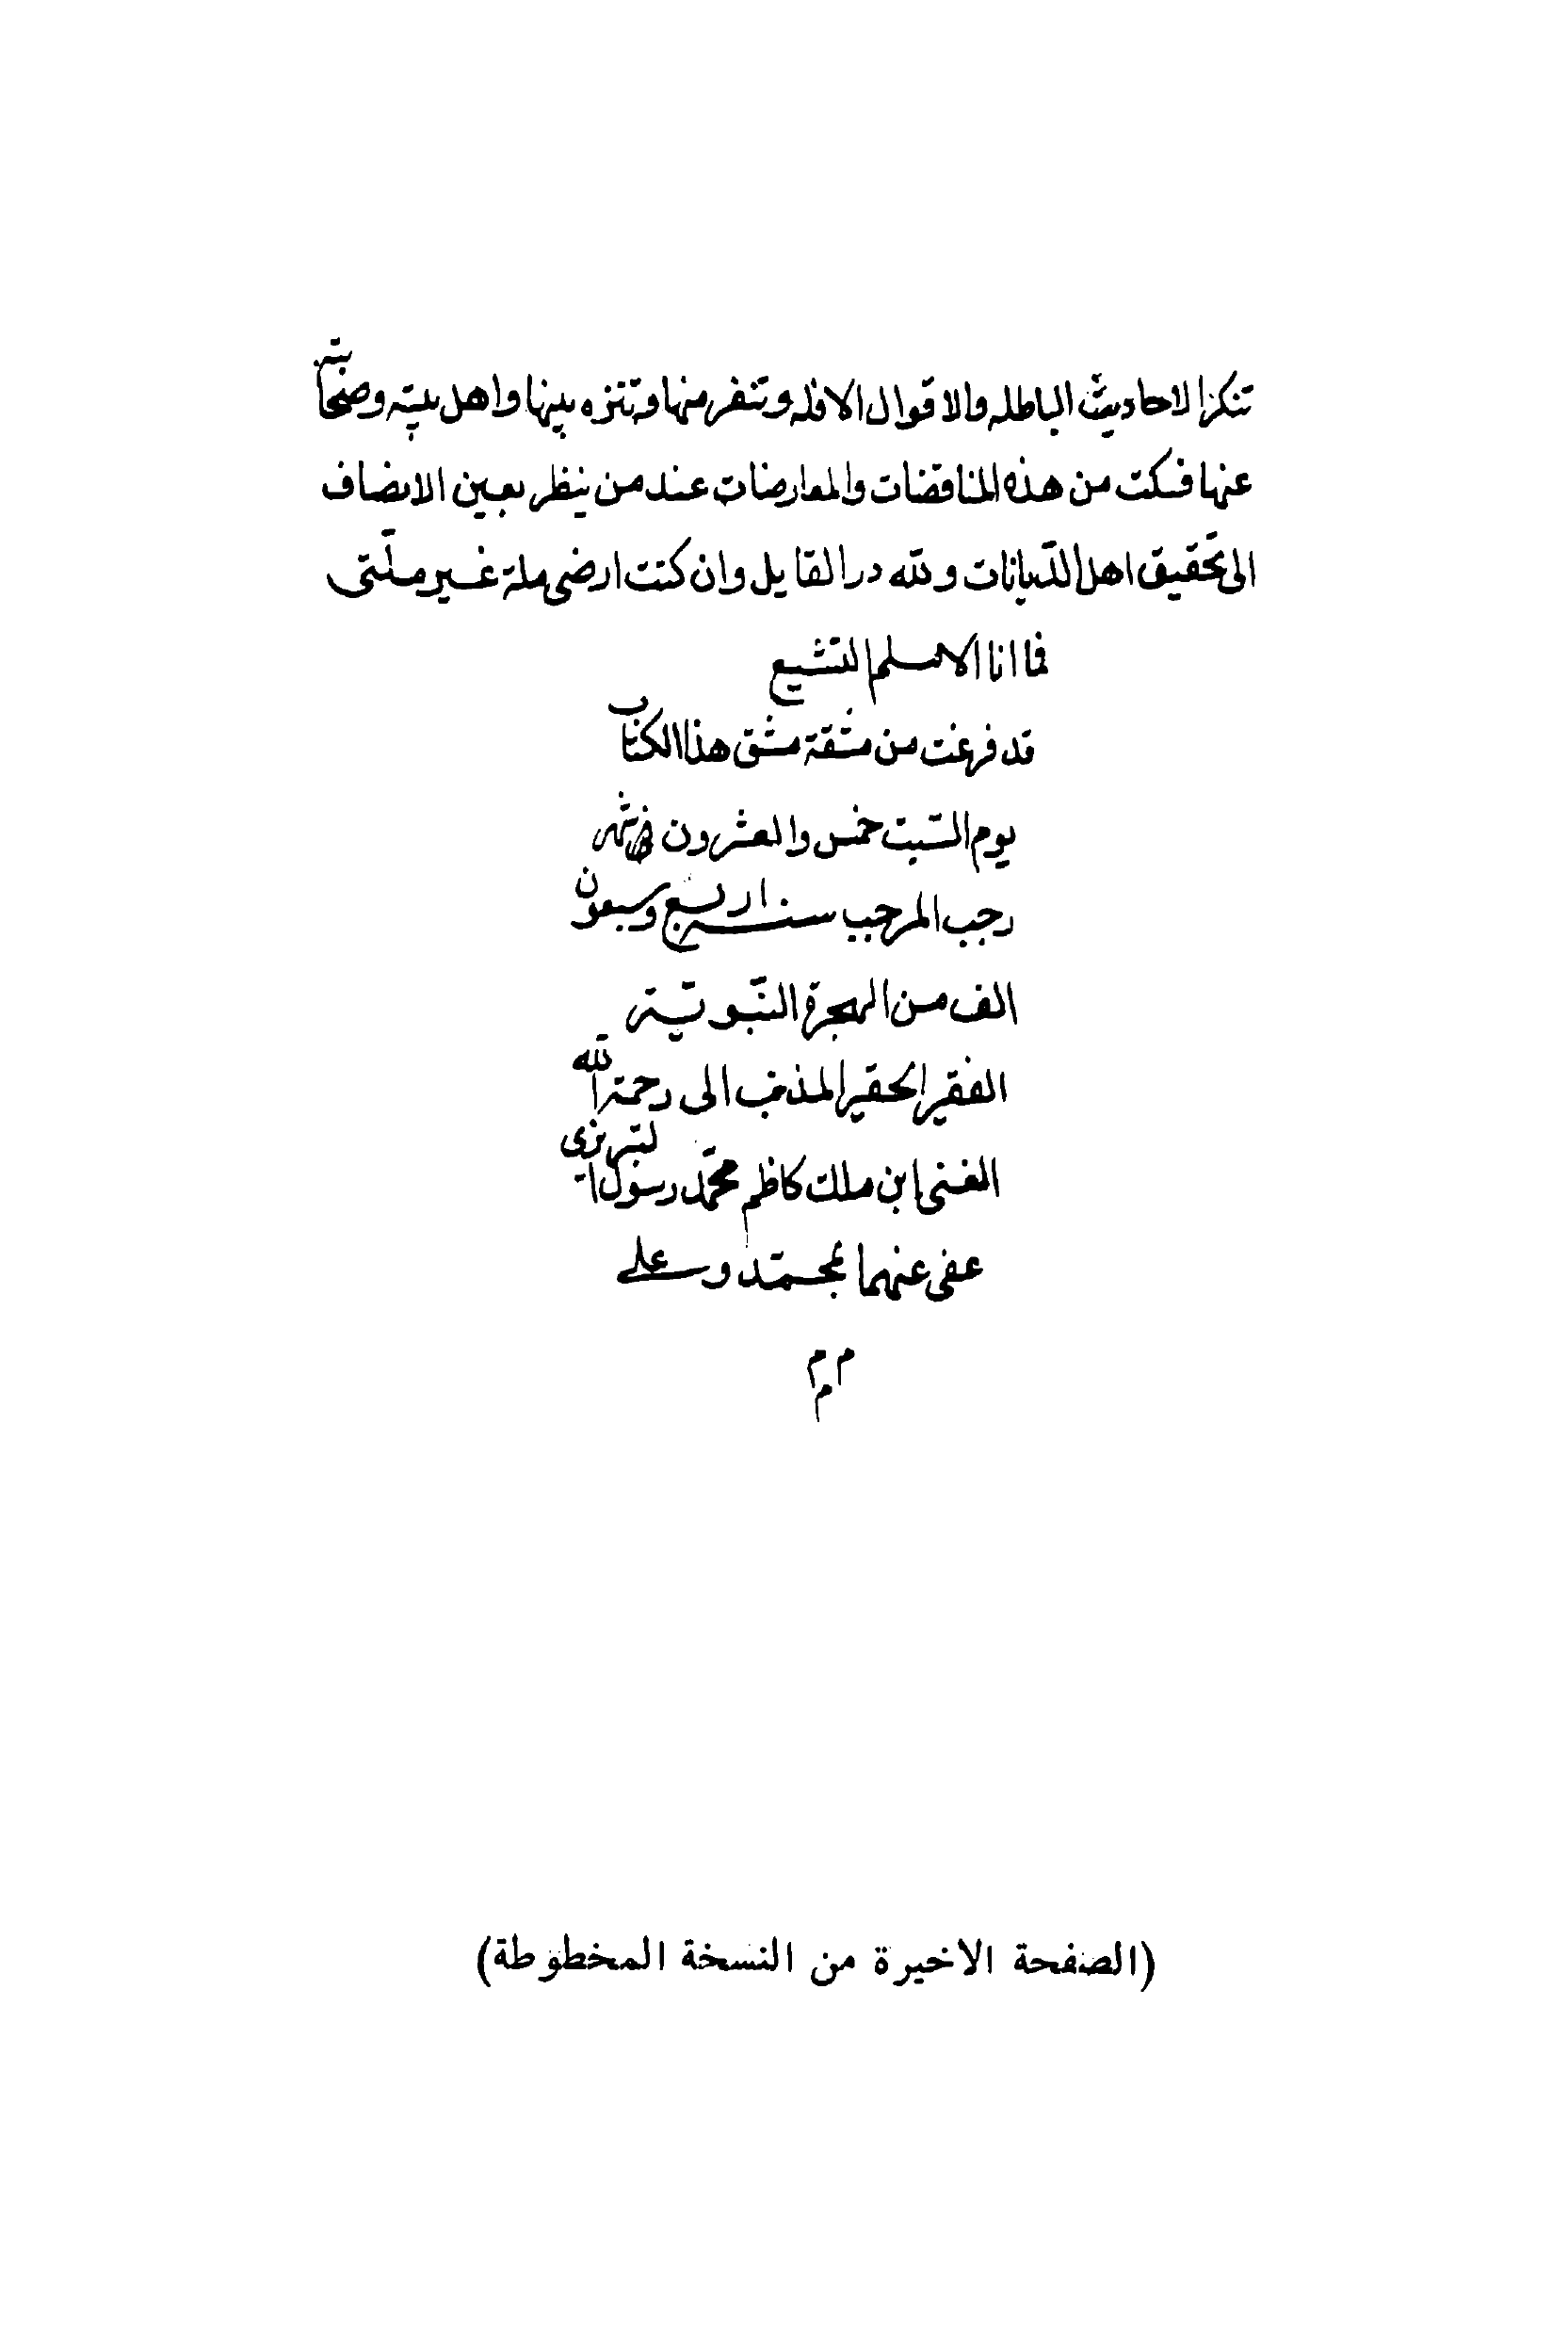 تنكر الاحاديث الباطله والاقوال الافله وتنفر منها وتنزه بينها واهل بيته وصحابته
عنها فكت من هذه المناقضات والمعارضات عند من ينظر بعين الانصاف
الى تحقيق اهل الديانات ولله در القايل وان كنت ارضى ملة غير ملّتى
فما انا الا مسلم التشيع
قد فرغت من مشقة مشق هذا الكتاب
يوم السّبت خمس والعشرون فى شهر
رجب المرجب سنه اربع وسبعون
الف من الهجرة النّبويّة
الفقير الحقير المذنب الى رحمة الله
الغنى ابن ملك كاظم محمّد رسول التبريزى
عفى عنهما بمحمّد وعلى
م م م
(الصفحة الاخيرة من النسخة المخطوطة)